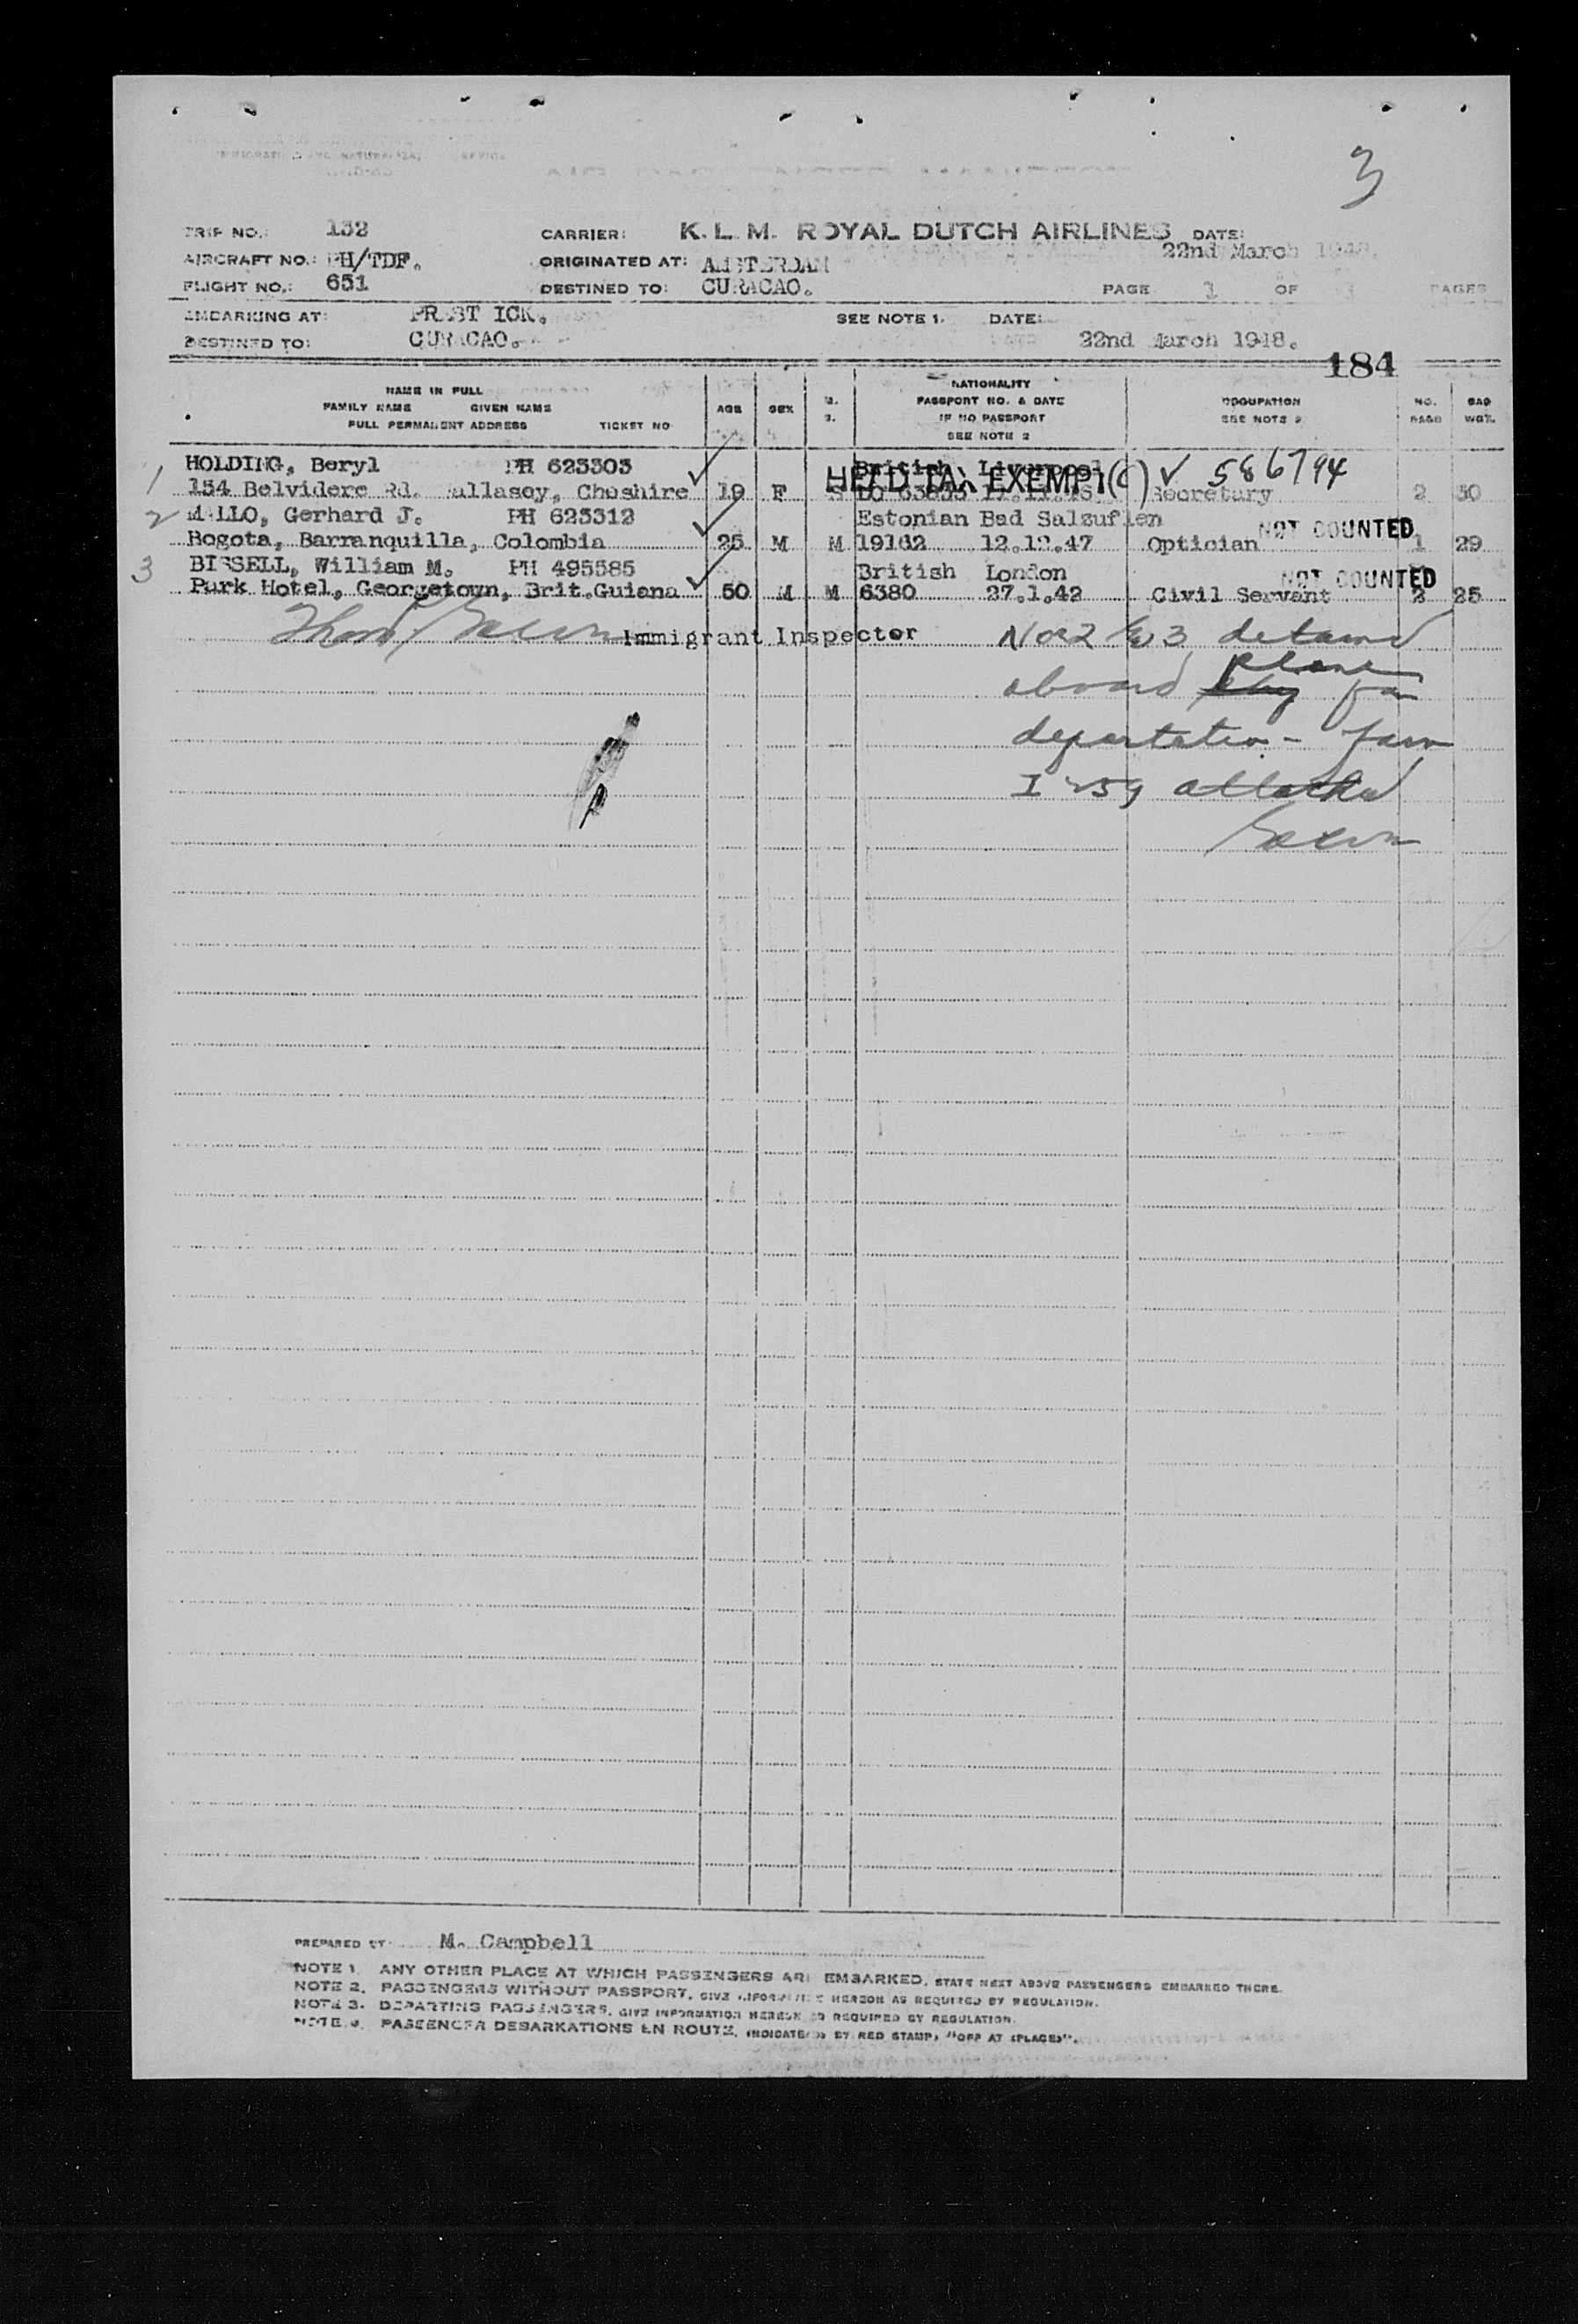 3
TRIP NO.: 132 CARRIER: K.L.M. ROYAL DUTCH AIRLINES DATE:
22nd March 1948.
AIRCRAFT NO.: PH/TDF. ORIGINATED AT: AMSTERDAM
FLIGHT NO.: 651 DESTINED TO: CURACAO. PAGE 1 OF PAGES
EMBARKING AT: PRESTWICK. SEE NOTE 1. DATE:
DESTINED TO: CURACAO. 22nd March 1948.
184
NAME IN FULL NATIONALITY
FAMILY NAME GIVEN NAME AGE SEX M. PASSPORT NO. & DATE OCCUPATION NO. BAG
FULL PERMANENT ADDRESS TICKET NO S. IF NO PASSPORT SEE NOTE 2 BAGG WGT.
SEE NOTE 2
1 HOLDING, Beryl PH 623303 British Liverpool HEAD TAX EXEMPT (C) ✓ 586794
154 Belvidere Rd. Wallasey, Cheshire 19 F S Secretary 2 30
2 MALLO, Gerhard J. PH 623312 Estonian Bad Salzuflen NOT COUNTED
Bogota, Barranquilla, Colombia 25 M M 19162 12.12.47 Optician 1 29
3 BISSELL, William M. PH 495585 British London NOT COUNTED
Park Hotel, Georgetown, Brit.Guiana 50 M M 6380 27.1.42 Civil Servant 2 25
Immigrant Inspector Nos 2 & 3 detained
plane
aboard for
deportation - form
I 259 attached
PREPARED BY M. Campbell
NOTE 1. ANY OTHER PLACE AT WHICH PASSENGERS ARE EMBARKED, STATE NEXT ABOVE PASSENGERS EMBARKED THERE.
NOTE 2. PASSENGERS WITHOUT PASSPORT, GIVE INFORMATION HEREON AS REQUIRED BY REGULATION.
NOTE 3. DEPARTING PASSENGERS, GIVE INFORMATION HEREON AS REQUIRED BY REGULATION.
NOTE 4. PASSENGER DEBARKATIONS EN ROUTE, INDICATE BY RED STAMP, "OFF AT (PLACE)".